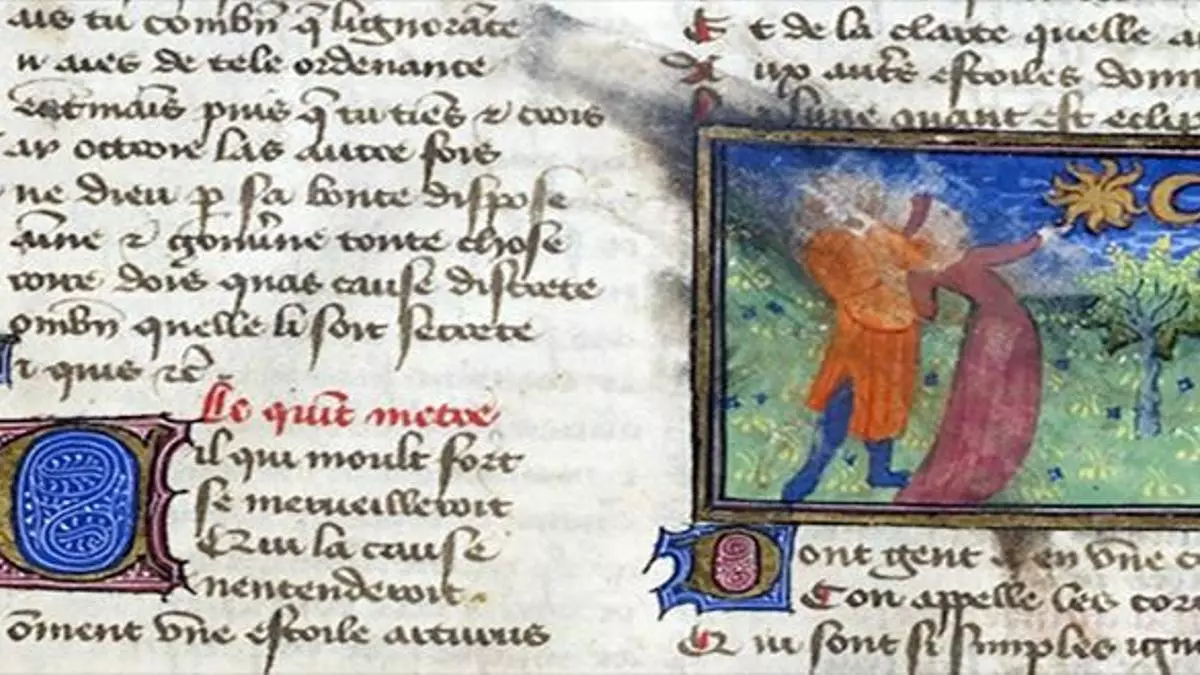 ais tu combñ q̃ lignorãce
n aies de tele ordenance
mais puis q̃ tu tiẽs ⁊ crois
las autre fois
ne dieu p̱ sa bonte dispose
toute chose
dois quas cause discrete
ombñ quelle ti soit secrete
t quis ⁊c̃
Le quit metre
il qui moult fort
se merueilleroit
Qui la cause
nentenderoit
õment vñe estoile arturus
Et de la clarte quelle a
ux autr̃s estoiles donn
lune quant est eclip
Dont gent en vñe c
Con appelle les cor
Qui sont si simples igno